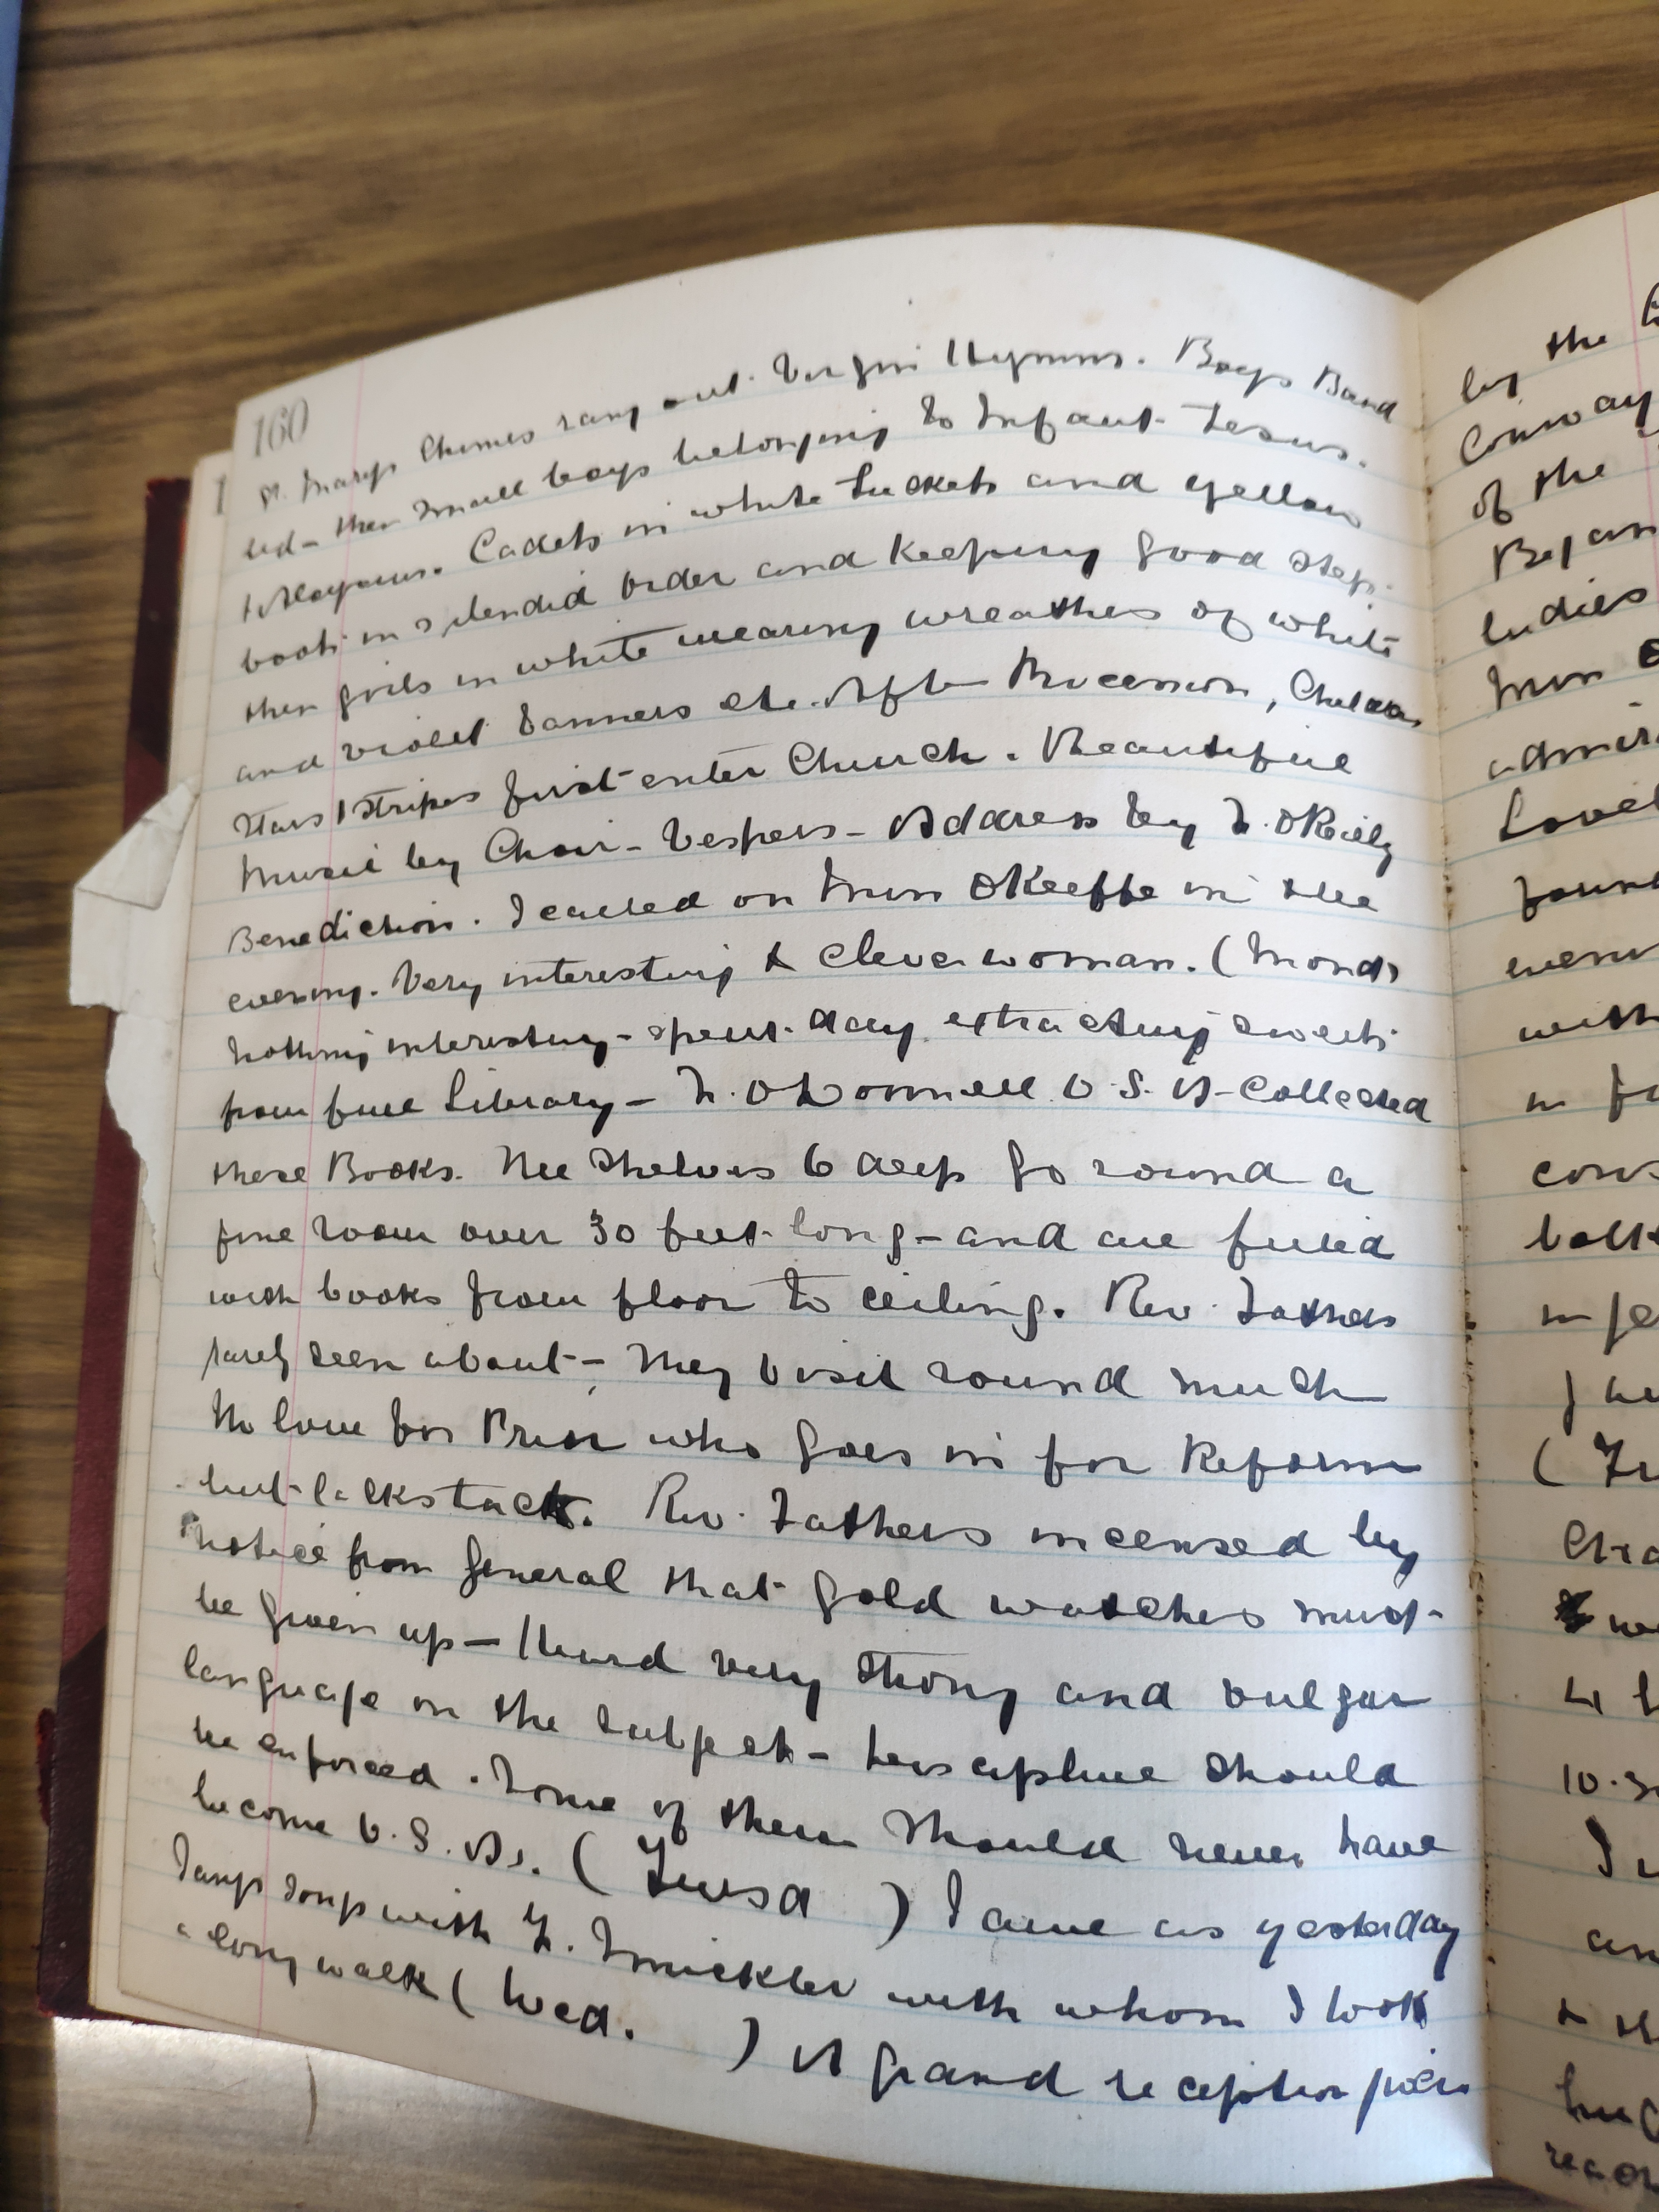 160
St. Marys Chimes rang out Virgin Hymns. Boys Band
led - then small boys belonging to Infant Jesus.
Cadets in white Jackets and yellow
boots in splendid order and keeping good step.
then girls in white wearing wreathes of white
and violet banners etc. After Procession,
Stars & Stripes first enter Church. Beautiful
Music by Choir - Vespers - Address by F. O'Reilly
Benediction. I called on Miss O'Keeffe in the
evening. Very interesting & clever woman. (Monday
Nothing interesting - spent day extracting sweets
from fine Library - F. O'Donnell O.S.A. Collected
these Books. The Shelves 6 deep go round a
fine room over 30 feet long - and are filled
with books from floor to ceiling. Rev. Fathers
rarely seen about - They visit round much
No love for Prior who goes in for Reform
but lacks tact. Rev. Fathers incensed by
notice from General that gold watches must
be given up - Heard very strong and vulgar
language on the subject - Discipline should
be enforced. Some of them should never have
become O.S.As. (Tuesd ) Same as yesterday
Sang songs with F. Smickler with whom I took
a long walk (Wed. ) A grand reception given
by the
Conway
of the
Began
ladies
Miss
Lovel
with
in
10.3